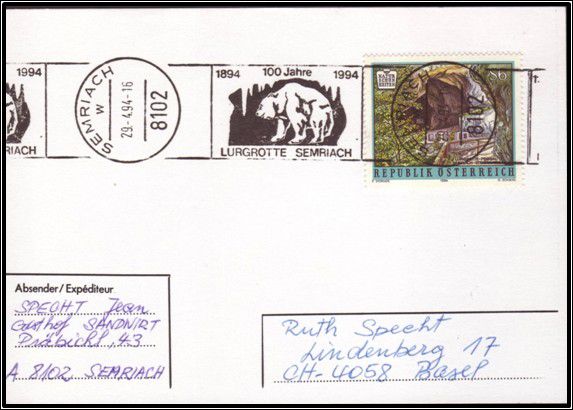 1994
RIACH
SEMRIACH
w
29.-4.94-16
8102
1894 100 Jahre 1994
LURGROTTE SEMRIACH
S6
NATUR
SCHÖN
HEITEN
8102
REPUBLIK ÖSTERREICH
1994
Absender/Expéditeur
SPECHT Jean
Gasthof SANDWIRT
43
A 8102 SEMRIACH
Ruth Specht
Lindenberg 17
CH-4058 Basel